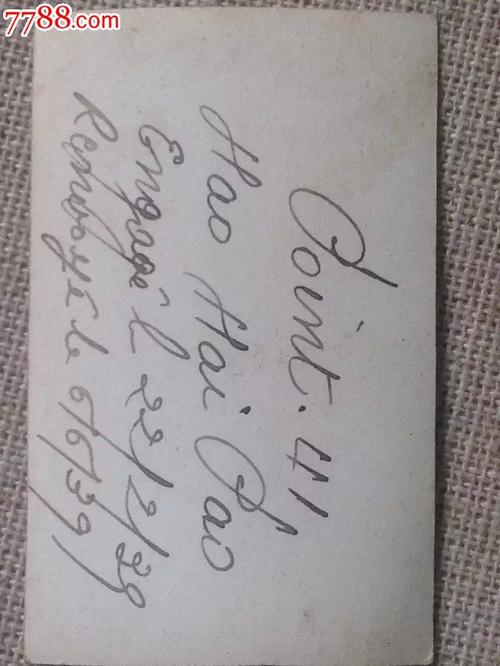 7788.com
Point. 41
Hao Hai Pao
Engagé l 22/2/39
Renvoyé le 6/6/39